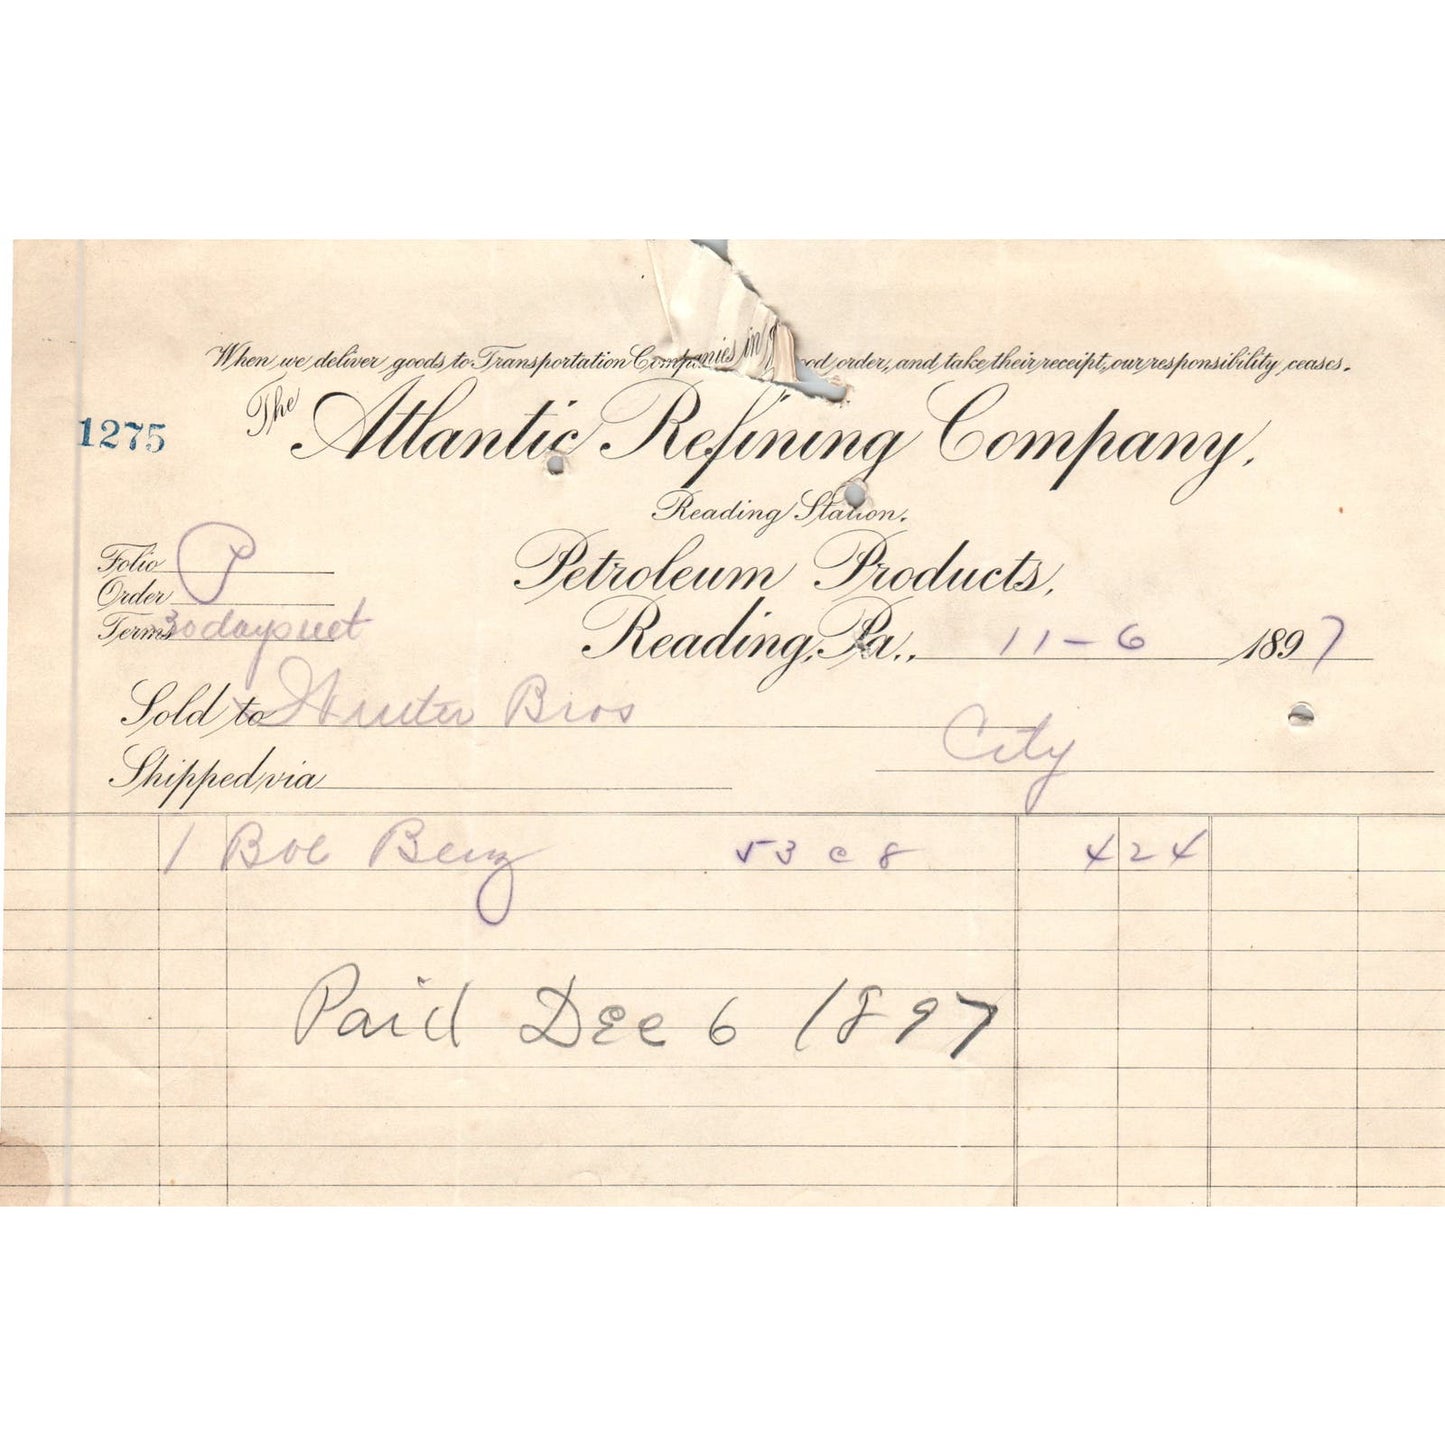 When we deliver goods to Transportation Companies in good order, and take their receipt, our responsibility ceases.
1275
The Atlantic Refining Company,
Reading Station.
Folio P
Petroleum Products,
Order
Terms 30 days net
Reading, Pa., 11-6 1897
Sold to Bros
City
Shipped via
1 Bbl Benz 53 @ 8 4 24
Paid Dec 6 1897